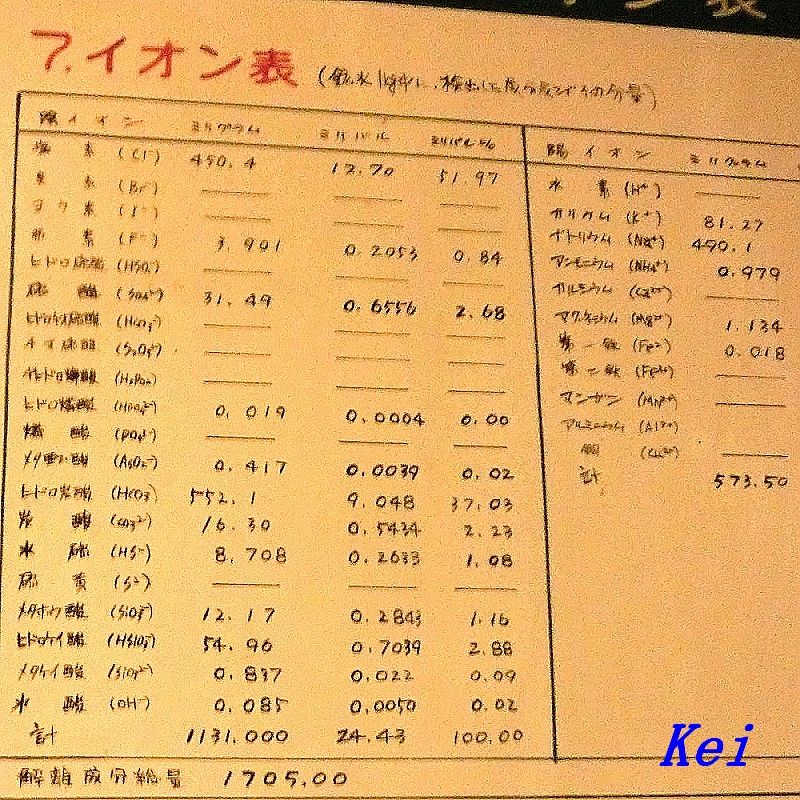 表
7.イオン表
イオン ミリグラム ミリバル ミリバル%
塩素 (Cl⁻) 450.4 12.70 51.97
臭素 (Br⁻)
ヨウ素 (I⁻)
弗素 (F⁻) 3.901 0.2053 0.84
ヒドロ硫酸 (HSO₄⁻)
硫酸 (SO₄²⁻) 31.49 0.6556 2.68
チオ硫酸 (S₂O₃²⁻)
ヒドロ燐酸 (HPO₄²⁻) 0.019 0.0004 0.00
燐酸 (PO₄³⁻)
メタ亜ヒ酸 (AsO₂⁻) 0.417 0.0039 0.02
ヒドロ炭酸 (HCO₃⁻) 552.1 9.048 37.03
炭酸 (CO₃²⁻) 16.30 0.5434 2.23
水硫 (HS⁻) 8.708 0.2633 1.08
硫黄 (S²⁻)
メタホウ酸 12.17 0.2843 1.16
ヒドロケイ酸 (HSiO₃⁻) 54.96 0.7039 2.88
メタケイ酸 (SiO₃²⁻) 0.837 0.022 0.09
水酸 (OH⁻) 0.085 0.0050 0.02
計 1131.000 24.43 100.00
陽イオン ミリグラム
水素 (H⁺)
カリウム (K⁺) 81.27
ナトリウム (Na⁺) 490.1
アンモニウム (NH₄⁺) 0.979
カルシウム (Ca²⁺)
マグネシウム (Mg²⁺) 1.134
第一鉄 (Fe²⁺) 0.018
第二鉄 (Fe³⁺)
マンガン (Mn²⁺)
アルミニウム (Al³⁺)
銅 (Cu²⁺)
計 573.50
解離成分総量 1705.00
Kei